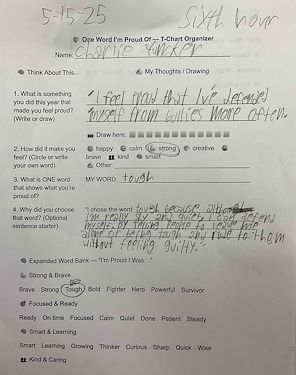 5-15-25 Sixth hour
One Word I'm Proud Of — T-Chart Organizer
Name: Charlie Yuncker
Think About This... My Thoughts / Drawing
1. What is something you did this year that made you feel proud? (Write or draw)
"I feel proud that I've defended
myself from bullies more often."
Draw here:
2. How did it make you feel? (Circle or write your own word)
happy calm strong creative
brave kind smart
Other:
3. What is ONE word that shows what you're proud of?
MY WORD: tough
4. Why did you choose that word? (Optional sentence starter)
"I chose the word tough because although
I'm really shy and quiet, I can defend
myself by telling people to leave me
alone or being tough and rude to them
without feeling guilty."
Expanded Word Bank — "I'm Proud I Was..."
Strong & Brave
Brave Strong Tough Bold Fighter Hero Powerful Survivor
Focused & Ready
Ready On time Focused Calm Quiet Done Patient Steady
Smart & Learning
Smart Learning Growing Thinker Curious Sharp Quick Wise
Kind & Caring